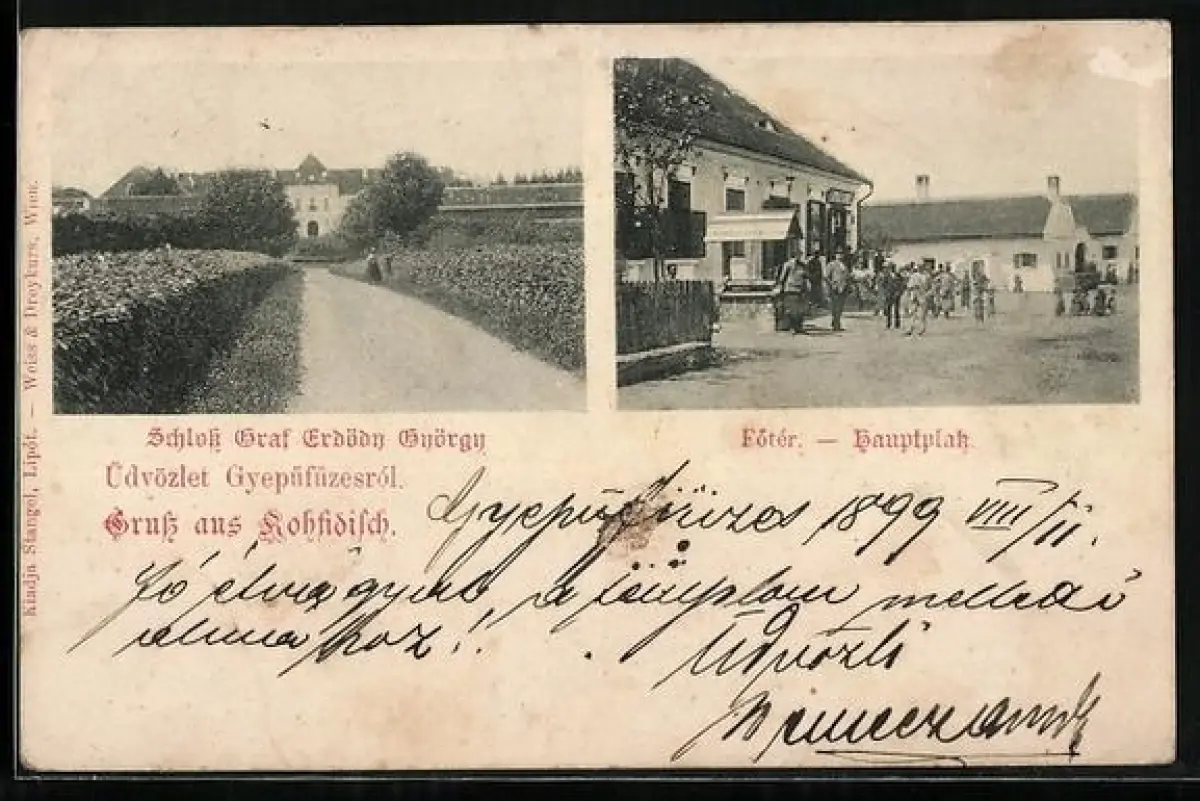 Kiadja Stangel, Lipót. — Weiss & Dreykurs, Wien.
Schloß Graf Erdödy György
Főtér. — Hauptplatz
Üdvözlet Gyepűfüzesről.
Gruß aus Kohfidisch.
Gyepűfüzes 1899 VIII/11.
Jó étvágyat, a templom mellett
alma hoz!!
Üdvözli